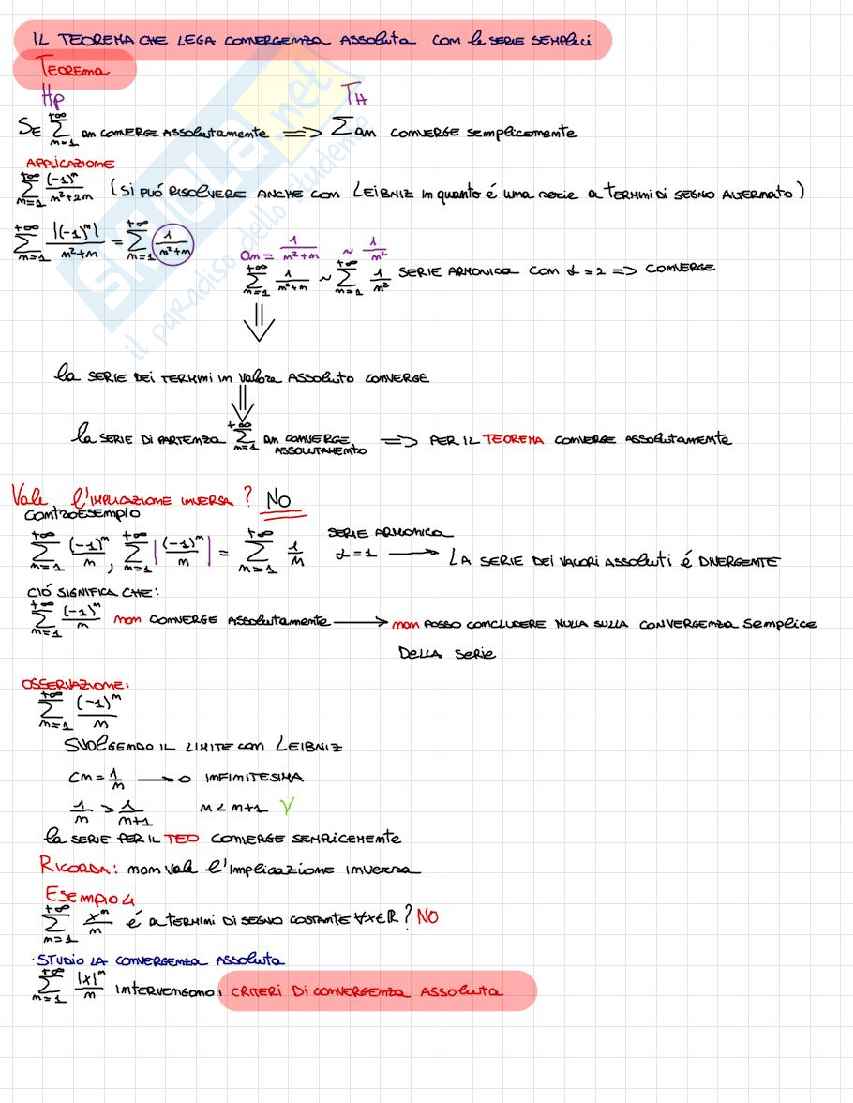 IL TEOREMA CHE LEGA CONVERGENZA ASSOLUTA CON le SERIE SEMPLICI
TEOREMA
Hp TH
SE +∞ Σ n=1 an CONVERGE ASSOLUTAMENTE => Σan CONVERGE SEMPLICEMENTE
APPLICAZIONE
+∞ Σ n=1 (-1)^n / n²+2n (SI PUÓ RISOLVERE ANCHE CON LEIBNIZ in quanto é una serie a TERMINI DI SEGNO ALTERNATO)
+∞ Σ n=1 |(-1)^n| / n²+n = +∞ Σ n=1 1 / n²+n
an = 1 / n²+n ~ 1 / n²
+∞ Σ n=1 1 / n²+n ~ +∞ Σ n=1 1 / n² SERIE ARMONICA CON α=2 => CONVERGE
la SERIE DEI TERMINI IN VALORE ASSOLUTO CONVERGE
la SERIE DI PARTENZA +∞ Σ n=1 an CONVERGE ASSOLUTAMENTO => PER IL TEOREMA CONVERGE ASSOLUTAMENTE
Vale l'IMPLICAZIONE INVERSA? NO
CONTROESEMPIO
+∞ Σ n=1 (-1)^n / n , +∞ Σ n=1 |(-1)^n / n| = +∞ Σ n=1 1 / n SERIE ARMONICA α=1 → LA SERIE DEI VALORI ASSOLUTI É DIVERGENTE
CIÓ SIGNIFICA CHE:
+∞ Σ n=1 (-1)^n / n non CONVERGE ASSOLUTAMENTE → non POSSO CONCLUDERE NULLA SULLA CONVERGENZA SEMPLICE
DELLA SERIE
OSSERVAZIONE:
+∞ Σ n=1 (-1)^n / n
SVOLGENDO IL LIMITE CON LEIBNIZ
Cn = 1/n → 0 INFINITESIMA
1/n > 1/n+1 n < n+1 V
la SERIE PER IL TEO CONVERGE SEMPLICEMENTE
RICORDA: non vale l'implicazione inversa
Esempio 4
+∞ Σ n=1 x^n / n é a TERMINI DI SEGNO COSTANTE ∀x∈ℝ? NO
·STUDIO LA CONVERGENZA ASSOLUTA
+∞ Σ n=1 |x|^n / n INTERVENGONO: CRITERI DI CONVERGENZA ASSOLUTA
skuola.net
il paradiso dello studente